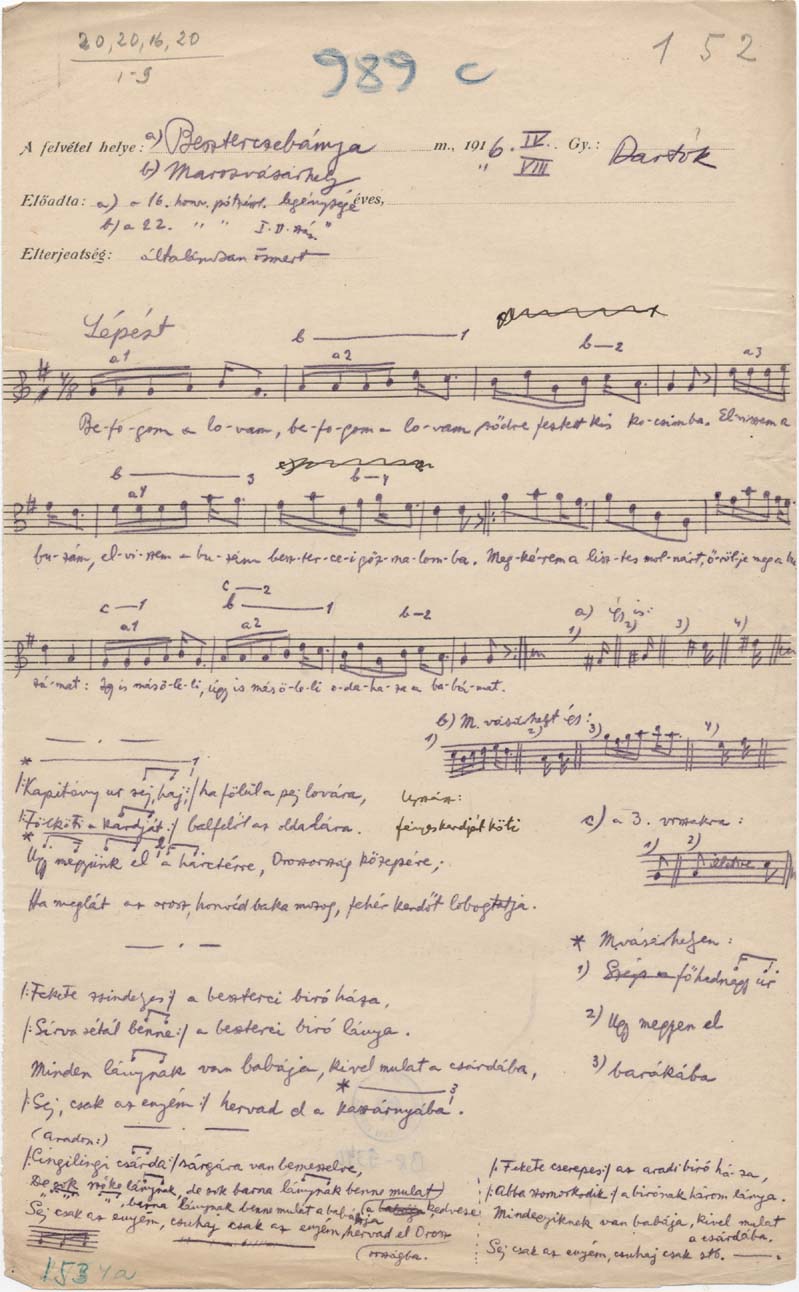 20, 20, 16, 20
1-9
989 c
152
A felvétel helye: a) Besztercebánya m., 1916. IV. Gy.: Bartók
b) Marosvásárhely " VIII
Előadta: a) a 16. honv. legénysége éves,
b) a 22. " " "
Elterjeatség: általánosan ösmert
Lépést
b 1
a1 a2 b—2 a3
Be-fo-gom a lo-vam, be-fo-gom a lo-vam festett kis ko-csimba. El-viszem a
b 3 b—4
a4
bu-zám, el-vi-szem a bu-zám besz-ter-ce-i göz-ma-lom-ba. Meg-ké-rem a lisz-tes mol-nárt, ő-röl-je meg a
c—2
c—1 b 1 b—2 a) így is:
a1 a2 1) 2) 3) 4)
zá-mat: Így is másö-le-li, úgy is másö-le-li o-da-ha-za a ba-bá-mat.
b) M. vásárhelyt és:
1) 2) 3) 4)
* 1
|:Kapitány ur sej, haj:/ ha fölül a pej lovára,
|:Fölköti a kardját:/ balfelöl az oldalára.
fényes kardját köti
c) a 3. versszakra:
1) 2)
illetve
* Ugy megyünk el a harctérre, Oroszország közepére;
Ha meglát az orosz, honvéd baka mozog, fehér kendőt lobogtatja.
* Mvásárhelyen:
1) főhadnagy úr
2) Ugy megyen el
3) barákába
|:Fekete zsindelyes:/ a beszterci biró háza,
|:Sirva sétál benne:/ a beszterci biró lánya.
Minden lánynak van babája, kivel mulat a csárdába,
* 3
|:Sej, csak az enyém:/ hervad el a kaszárnyába.
(Aradon:)
|:Cingilingi csárda:/ sárgára van bemeszelve,
De sok szőke lánynak, de sok barna lánynak benne mulat
barna lánynak benne mulat a babája (a kedvese
Sej csak az enyém, csuhaj csak az enyém, hervad el Orosz
(országba.
|:Fekete cserepes:/ az aradi biró há-za,
|:Abba szomorkodik:/ a birónak három lánya.
Mindegyiknek van babája, kivel mulat
a csárdába.
Sej csak az enyém, csuhaj csak stb.